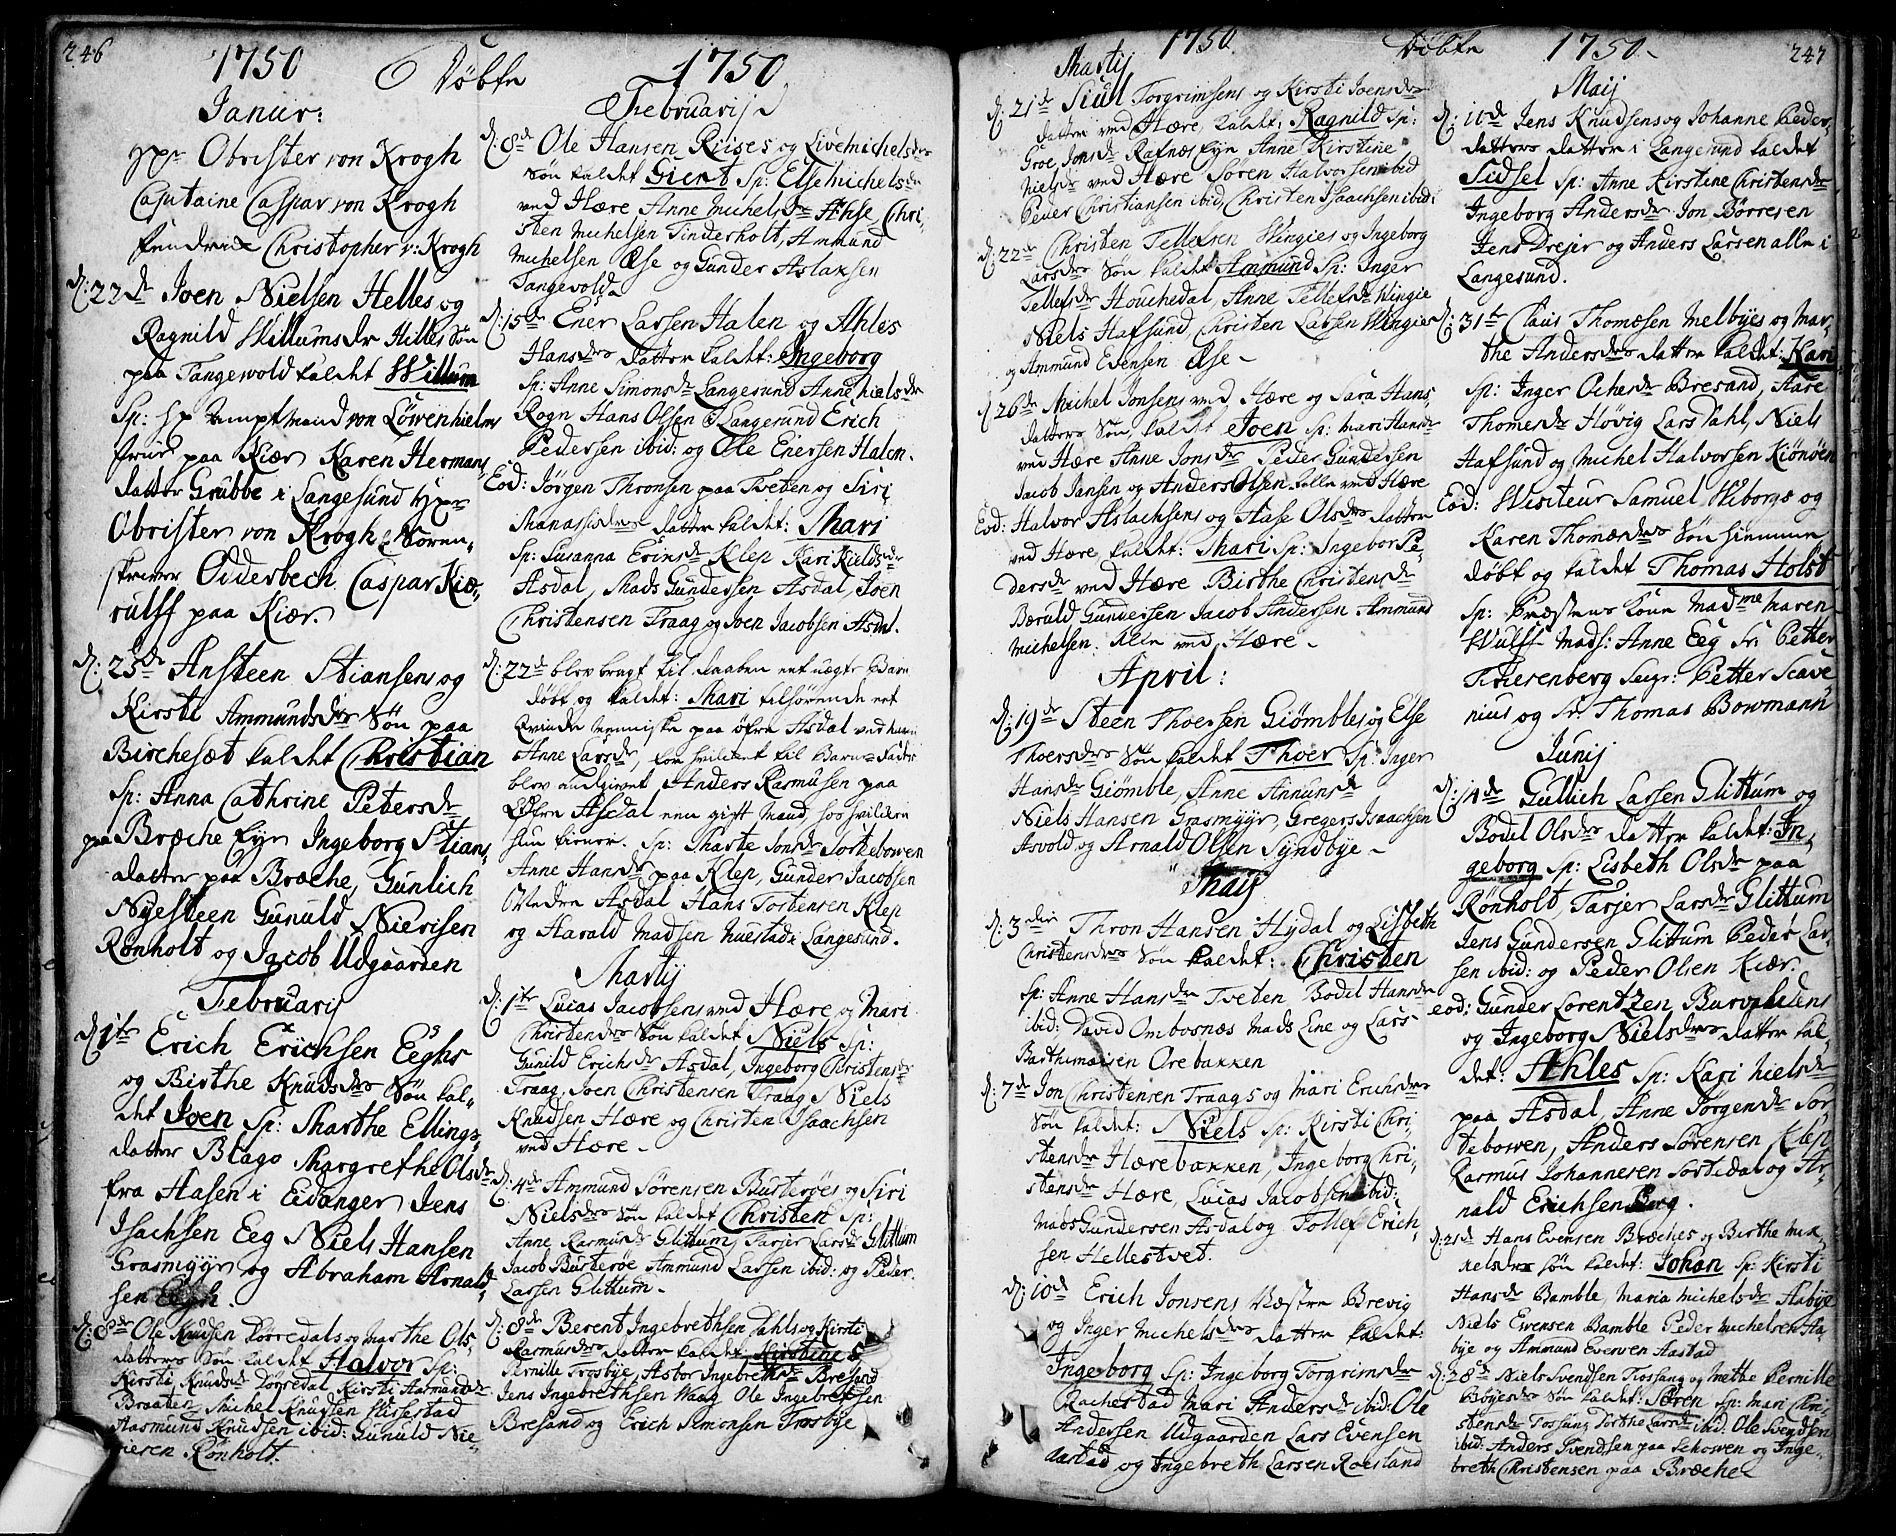 246
1750 Döbte 1750
Januar:
Hr Obrister von Krogh
Capitaine Caspar von Krogh
Fendrik Christopher v: Krogh
d: 22de Joen Nielsen Helles og
Ragnild Willumsdr Hilles Søn
paa Tangewold kaldet Willum
Sp: Hr von Löwenhielms
frue paa Kiær Karen Hermans
datter Grubbe i Langesund Hr
Obrister von Krogh Soren-
skriver Odderbech Caspar Kiæ-
rulff paa Kiær.
d: 25de Ansteen Stiansens og
Kirsti Ammundsdr Søn paa
Birchesæt kaldet Christian
Sp: Anna Cathrine Petersdr
paa Bræche Eyr Ingeborg Stians
datter paa Bræche, Gunlich
Nyesteen Gunuld Nierisen
Rønholt og Jacob Udgaarden
Februarij
d: 1te Erich Erichsen Eeghs
og Birthe Knudsdr Søn kal-
det Joen Sp: Marthe Ellings
datter Blago Margrethe Olsdr
fra Aasen i Eidanger Jens
Isachsen Eeg Niels Hansen
Grasmyyr og Abraham Arnold
sen Eegh.
d: 8de Ole Knudsen Dørredals og Marthe Ols-
datters Søn kaldet Halvor Sp:
Kirsti Knudsdr Dørredal Kirsti Aamundsdr
Braaten, Michel Knudsen Wissestad
Aasmund Knudsen ibid: Gunuld Nie-
riesen Rønholt.
Februarij
d: 8de Ole Hansen Riises og Live Michelsdrs
Søn kaldet Giert Sp: Else Michelsdr
ved Hære Anne Michelsdr Ahse Chri-
sten Michelsen Tinderholt, Ammund
Michelsen Æse og Gunder Aslaksen
Tangevold
d: 15de Ener Larsen Halen og Ahles
Hansdrs datter kaldet: Ingeborg
Sp: Anne Simonsdr Langesund Anne Nielsdr
Rogn Hans Olsen i Langesund Erich
Pedersen ibid: og Ole Enersen Halen.
Eod: Jörgen Thronsen paa Tveten og Siri
Manassisdrs datter kaldet: Mari
Sp: Susanna Eriksdr Klep Kari Kieldsdr
Asdal, Mads Gundersen Asdal, Joen
Christensen Traag og Joen Jacobsen Asdal.
d: 22de blev bragt til daaben eet uægte Barn
döbt og kaldet: Mari tilhörende eet
Qvinde Menniske paa öfre Asdal ved navn
Anne Larsdr, for hvilcket til Barne Fader
blev angivet Anders Rasmusen paa
Asdal een gift Mand, hos hvilcken
hun tiener. Sp: Marte Jonsdr Sortebowen
Anne Hansdr paa Klep, Gunder Jacobsen
Nedre Asdal Hans Tostensen Klep
og Harald Madsen Nuestad i Langesund.
Martij
d: 1te Lucas Jacobsens ved Hære og Mari
Christensdrs Søn kaldet Niels Sp:
Gunild Erichsdr Asdal, Ingeborg Christensdr
Traag, Joen Christensen Traag Niels
Knudsen Hære og Christen Isaachsen
ved Hære -
d: 4de Ammund Sørensen Busterøes og Siri
Nielsdrs Søn kaldet Christen Sp:
Anne Rasmusdr Glittum, Tarjer Larsdr Glittum
Jacob Busterøe Ammund Larsen ibid: og Peder
Larsen Glittum.
d: 8de Berent Ingebrethsen Dahls og Kirsti
Rasmusdrs datter kaldet Kirstine Sp
Pernille Trosbye, Asbor Ingebrethsdr Bresand
Jens Ingebrethsen Waag Ole Ingebrethsen
Bresand og Erich Simonsen Trosbye
1750. Döbte 1750. 247
Martij
d: 21de Siul Torgrimsens og Kirsti Joens
datter ved Hære, kaldet: Ragnild Sp:
Groe Jonsdr Rafnæs Eyr Anne Kirstine
Nielsdr ved Hære Søren Halvorsen ibid
Peder Christiansen ibid, Christen Isaachsen ibid:
d: 22de Christen Tellefsen Wingies og Ingeborg
Larsdrs Søn kaldet Ammund Sp: Inger
Tellefsdr Houchedal, Anne Tellefsdr Wingie
Niels Hafsund, Christen Larsen Wingie
og Ammund Evensen Æse -
d: 26de Michel Jonsens ved Hære og Sara Hans-
datters Søn kaldet Joen Sp: Mari Hansdr
ved Hære Anne Jonsdr Peder Gundersen
Jacob Jansen og Anders Olsen alle ved Hære
Eod: Halvor Aslachsens og Aase Olsdrs datter
ved Hære kaldet: Mari Sp: Ingebor Pe-
dersdr ved Hære Birthe Christensdr
Bæruld Gundersen Jacob Andersen Ammund
Michelsen. Alle ved Hære -
April:
d: 19de Steen Thoersen Giømbles og Else
Thoersdrs Søn kaldet Thoer Sp: Inger
Hansdr Giömble, Anne Annunsdr
Niels Hansen Grasmyyr, Gregers Isaachsen
Aswold, og Arnald Olsen Syndbye -
Maij
d: 3die Thron Hansen Hydal og Lisbeth
Christensdrs Søn kaldet: Christen
Sp: Anne Hansdr Tveten Bodil Hansdr
ibid: David Ombosnæs Mads Eine og Lars
Barthimæisen Orebakken
d: 7de Jon Christensen Traags og Mari Erichsdrs
Søn kaldet: Niels Sp: Kirsti Chri-
stensdr Hærebakken, Ingeborg Chri-
stensdr Hære, Lucas Jacobsen ibid:
Mads Gundersen Asdal og Tollef Erich-
sen Hellestvet.
d: 10de Erich Jonsens Næstre Brevig
og Inger Michelsdrs datter kaldet:
Ingeborg Sp: Ingeborg Torgrimsdr
Rachestad Mari Andersdr ibid: Ole
Andersen Udgaarden Lars Evensen
Aastad og Ingebreth Larsen Roesland
Maij
d: 10de Jens Knudsens og Johanne Peder-
datters datter i Langesund kaldet
Sidsel Sp: Anne Kirstine Christensdr
Ingeborg Andersdr Jon Börresen
Jens Drejer og Anders Larsen alle i
Langesund.
d: 31te Claus Thomesen Melbyes og Mar-
the Andersdrs datter kaldet: Kari
Sp: Inger Ochersdr Bresand, Aase
Thomesdr Høvig Lars Dahl, Niels
Hafsund og Michel Halvorsen Kiønøen
Eod: Visiteur Samuel Wiborgs og
Karen Thomædrs Søn hiemme
døbt og kaldet Thomas Holst
Sp: Præstens Kone Madme Maren
Wulff Mads: Anne Eeg Sr: Petter
Fierenberg Seigr: Petter Scave
nius og Sr. Thomas Bowmann
Junij
d: 14de Gullich Larsen Glittum og
Bodel Olsdrs datter kaldet: In-
geborg Sp: Lisbeth Olsdr paa
Rønholt, Tarjer Larsdr Glittum
Jens Gundersen Glittum Peder Lar-
sen ibid: og Peder Olsen Kiær.
eod: Gunder Lorentzen Burvaldens
og Ingeborg Nielsdrs datter kal-
det: Ahles Sp: Kari Nielsdr
paa Asdal, Anne Jørgensdr Sor-
tebowen, Anders Sørensen Klep
Rasmus Johannesen Sortedal og Ar-
nald Erichsen Berg.
d: 21de Hans Evensen Bræches og Birthe Mik-
kelsdrs Søn kaldet: Johan Sp: Kirsti
Hansdr Bamble Maria Michelsdr Aabye
Niels Evensen Bamble Peder Michelsen Aa-
bye og Ammund Evensen Aastad
d: 28de Niels Svendsen Fossang og Mette Pernille
Bøyesdrs Søn kaldet: Søren Sp: Mari Chri-
stensdr Fossang Dorthe Larsdr ibid: Ole Svendsen
ibid: Anders Svendsen paa Schowen og Inge-
breth Christensen paa Bræche